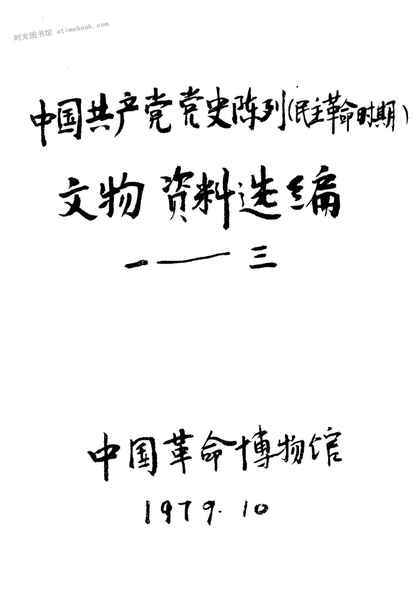 时光图书馆 atimebook.com
中国共产党党史陈列(民主革命时期)
文物资料选编
一——三
中国革命博物馆
1979.10